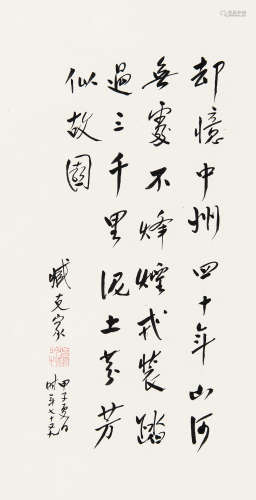 却憶中州四十年山河
無處不烽煙戎裝踏
過三千里泥土芬芳
似故園
臧克家
甲子夏日
时年七十九